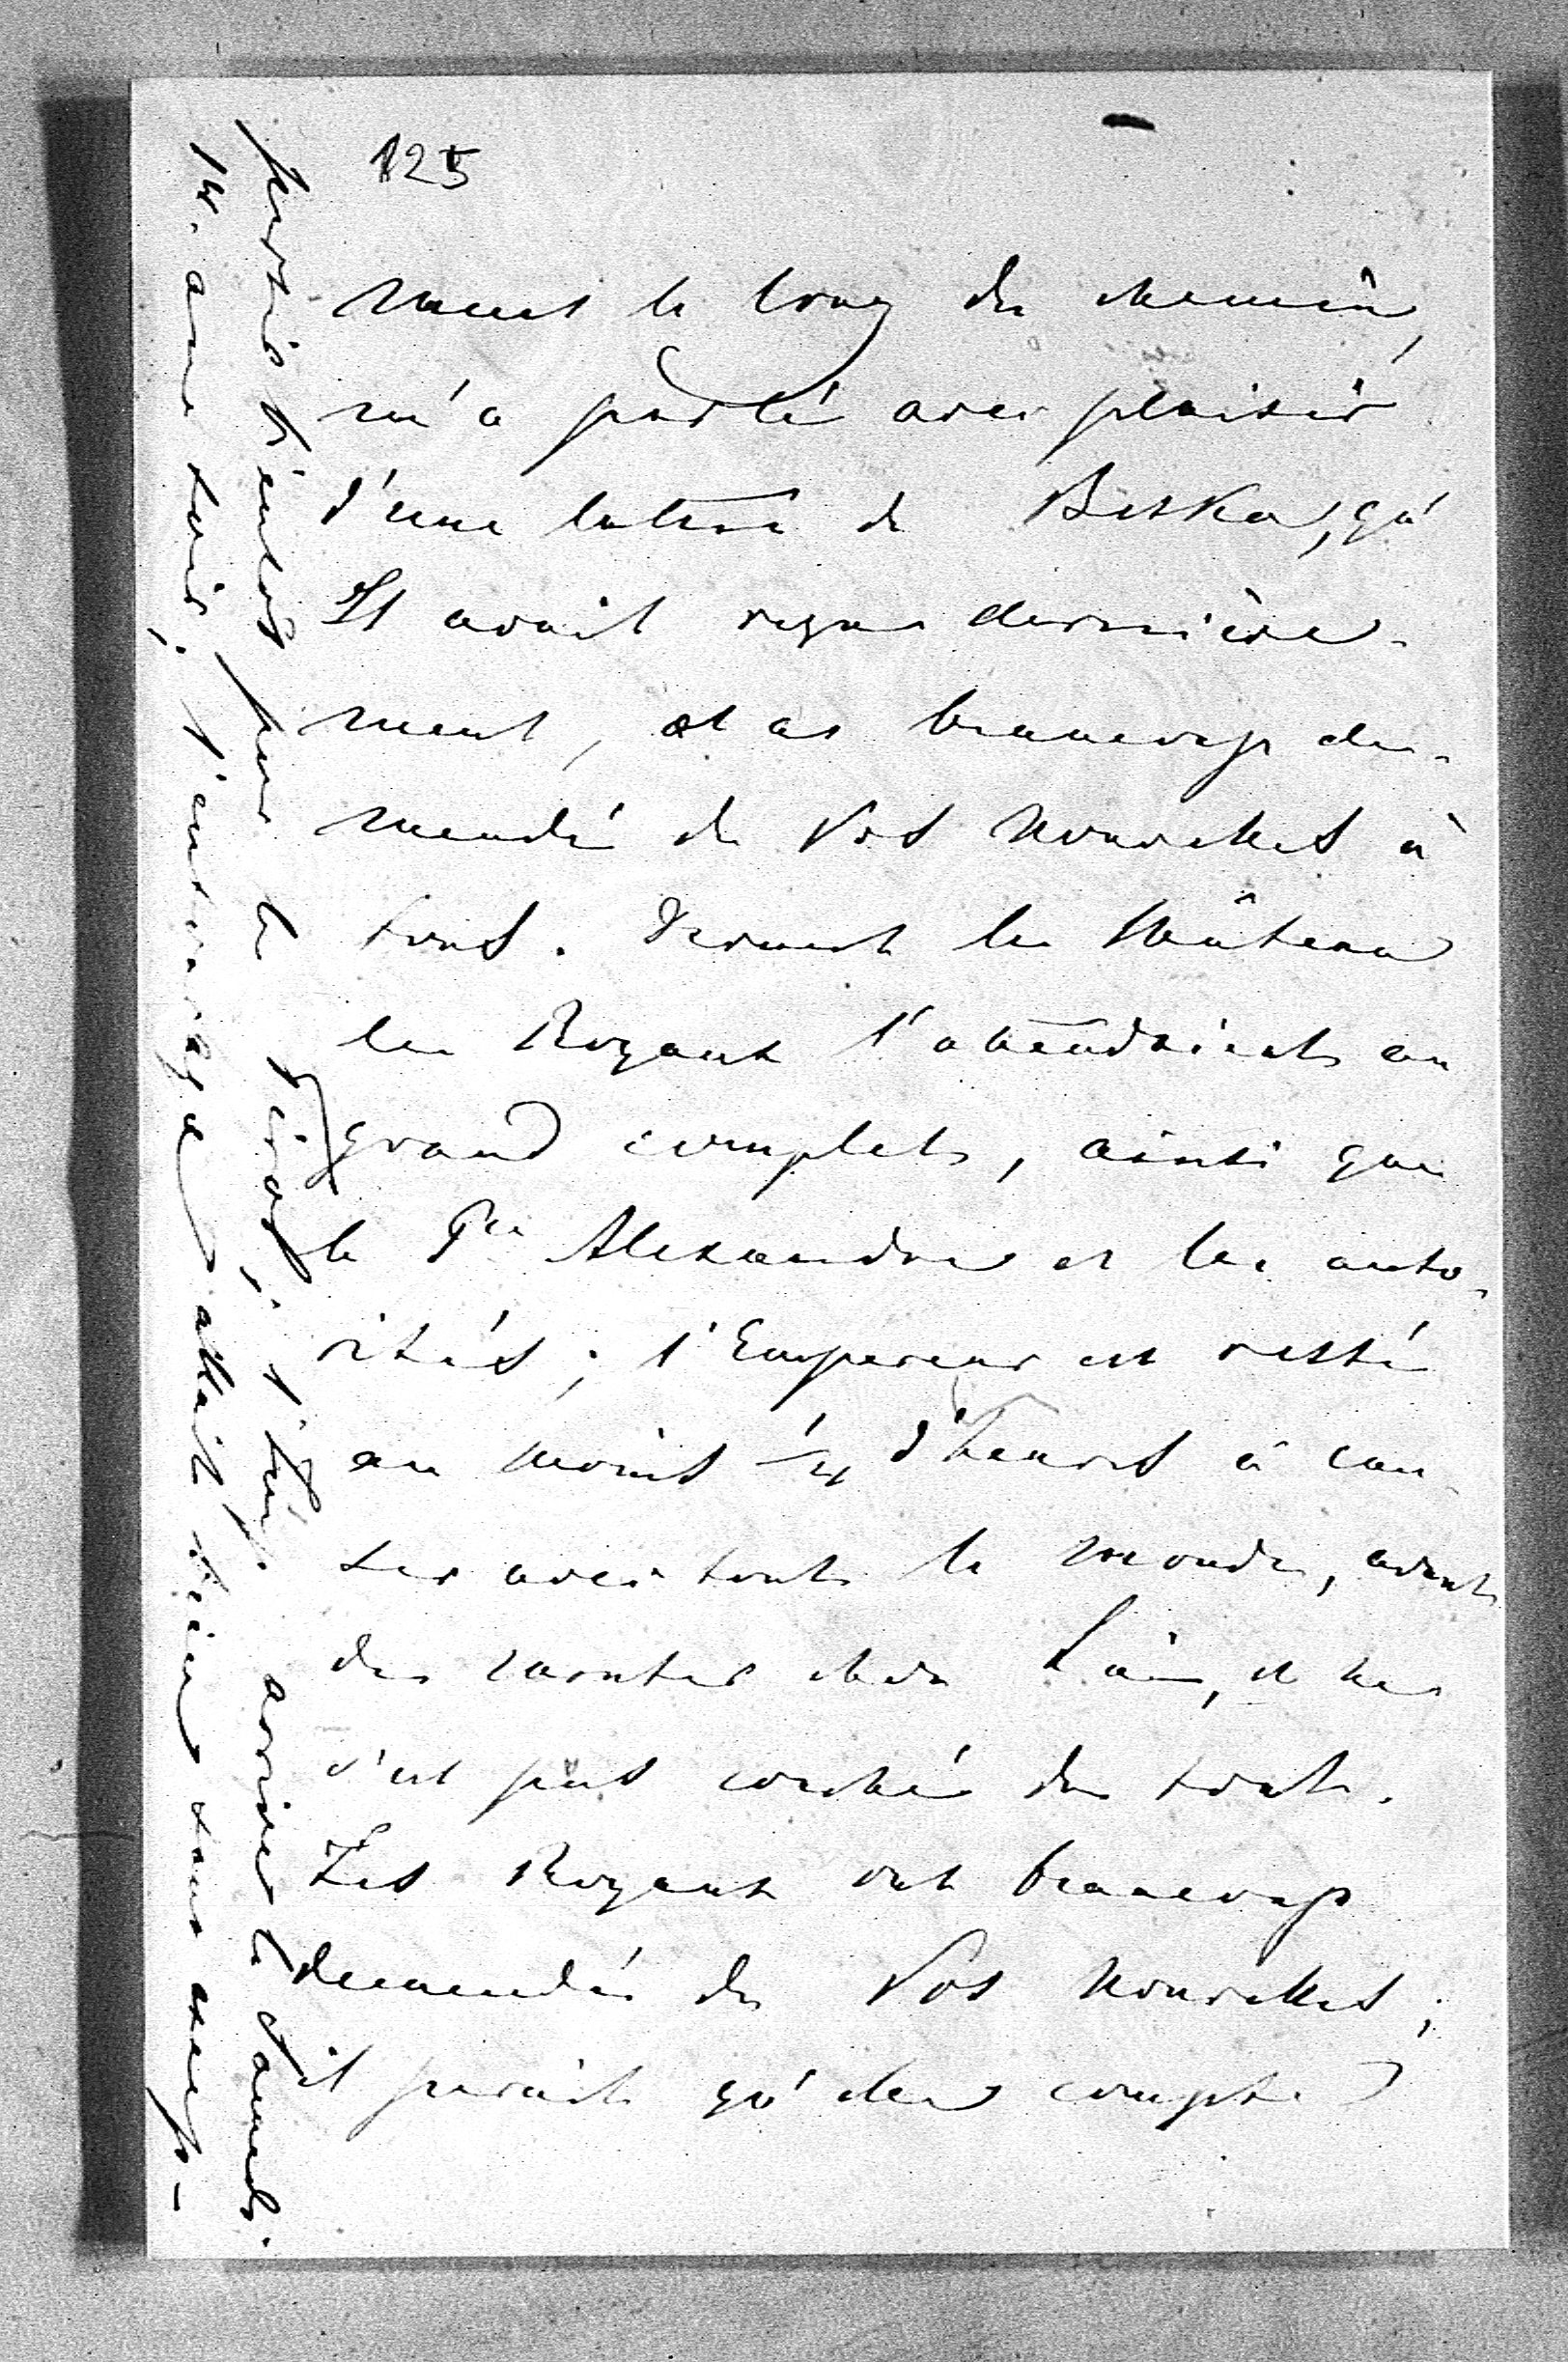 125
ment le long du chemin,
m'a parlé avec plaisir
d'une lettre de Beska, qu'
Il avait reçue dernière-
ment, et a beaucoup de-
mandé de Vos nouvelles à
tous. Devant le Château
les Royaux l'attendaient au
grand complet, ainsi que
le Pce Alexandre et les auto-
rités; l'Empereur est resté
au moins ¼ d'heure à cau-
ser avec tout le monde, avant
de monter chez Lui, et ne
s'est pas couché du tout.
Les Royaux ont beaucoup
demandé de Vos nouvelles;
il parait qu'elles compte
partir bientôt pour le
arriver le
14. au soir; l'entourage allait bien sans excep-